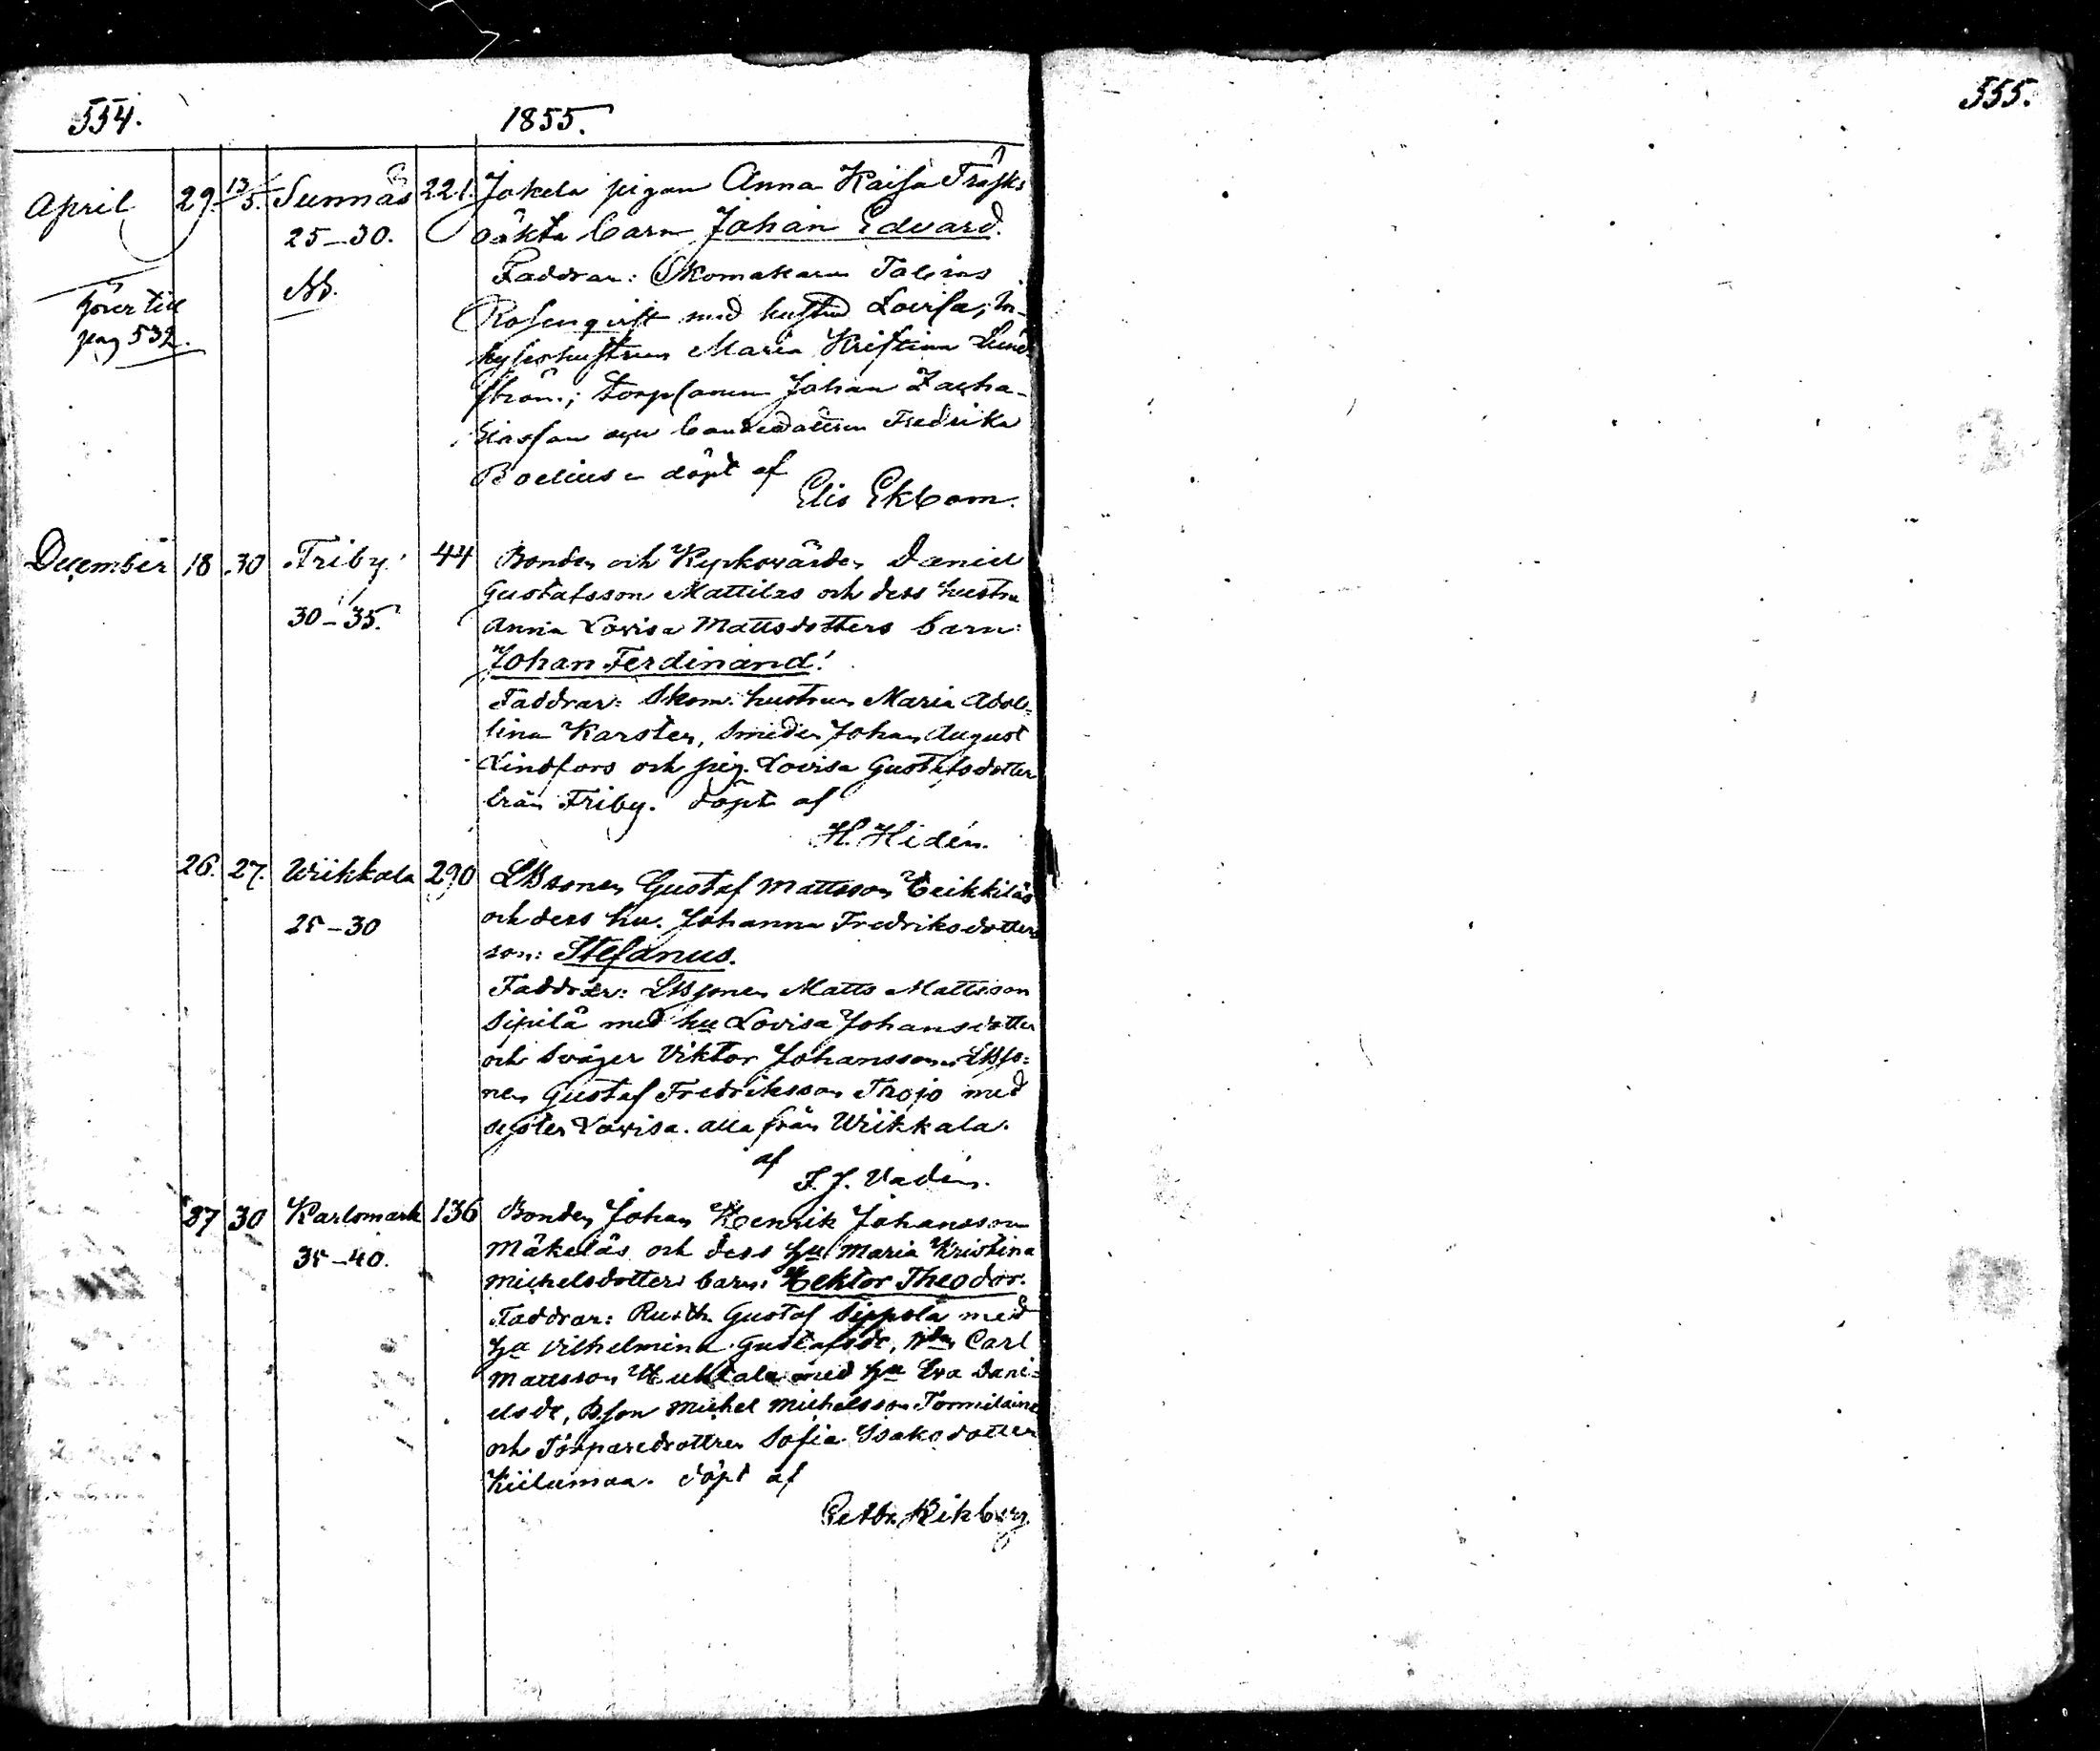 554.
1855.
555.
April 29. 13/5. Sunnäs 221. Jokela pigan Anna Kaisa Träsks
25-30. oäkta barn Johan Edvard.
Faddrar: Skomakaren Tobias
hörer till
pag 532.
NB.
Rosenqvist med hustru Lovisa; In-
hyseshustrun Maria Kristina Lund-
ström; torpsonen Johan Zacha-
riasson och bondedottren Fredrika
Boelius döpt af
Elis Ekbom.
December 18 30 Friby 44 Bonden och Kyrkovärden Daniel
Gustafsson Mattilas och dess hustru
30-35. Anna Lovisa Mattsdotters barn:
Johan Ferdinand!
Faddrar: Skom. hustrun Maria Adol-
fina Karsten, Smeden Johan August
Lindfors och pig. Lovisa Gustafsdotter
från Friby. döpt af
H. Hidén.
26. 27. Wiikkala 290 LBsonen Gustaf Mattsson Heikkiläs
25-30 och dess hu. Johanna Fredriksdotters
son: Stefanus.
Faddrar: LBsonen Matts Mattsson
Sipilä med hu Lovisa Johansdotter
och Svåger Viktor Johansson, LBso-
nen Gustaf Fredriksson Trojo med
syster Lovisa. alla från Wiikkala.
af
F. J. Vadén.
27 30 Karlomark 136 Bonden Johan Henrik Johansson
Mäkeläs och dess hu Maria Kristina
35-40. Michelsdotters barn: Hektor Theodor.
Faddrar: Rusth. Gustaf Sippola med
hu Vilhelmina Gustafsdr, Bdn Carl
Mattsson Huhtala med hu Eva Dani-
elsdr, Bson Michel Michelsson Tommilainen
och Torparedottren Sofia Isaksdotter
Kiilumaa. döpt af